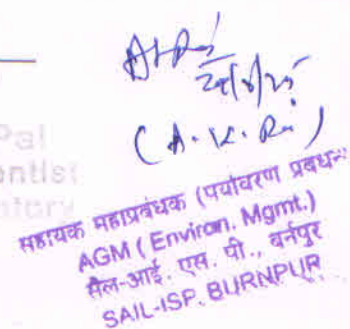 Pal
entist
(A. K. Rai)
सहायक महाप्रबंधक (पर्यावरण प्रबंधन)
AGM (Environ. Mgmt.)
सैल-आई. एस. पी., बर्नपुर
SAIL-ISP, BURNPUR